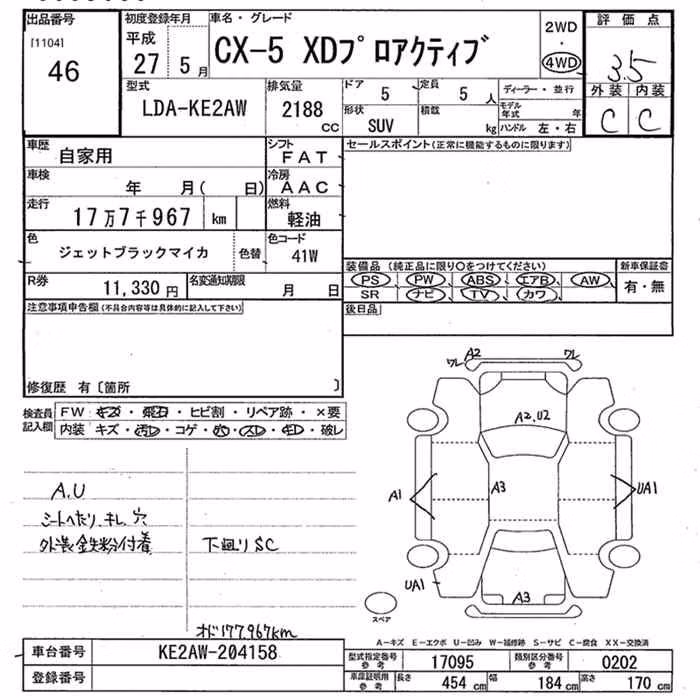 出品番号 初度登録年月 車名・グレード 2WD 評価点
[1104] 平成 ・ 3.5
46 27 5月 CX-5 XDプロアクティブ 4WD 外装 内装
型式 排気量 ドア 5 定員 5人 ディーラー・並行 C C
LDA-KE2AW 2188 cc 形状 SUV 積載 kg モデル年式 年
ハンドル 左・右
車歴 自家用 シフト FAT セールスポイント(正常に機能するものに限ります)
車検 年 月( 日) 冷房 AAC
走行 17万7千967 km 燃料 軽油
色 ジェットブラックマイカ 色替 色コード 41W
装備品 (純正品に限り〇をつけてください) 新車保証書
R券 11,330円 名変通知期限 月 日 PS PW ABS エアB AW 有・無
SR ナビ TV カワ
注意事項申告欄(不具合内容等は具体的に記入して下さい) 後日品
修復歴 有〔箇所 〕
検査員記入欄 FW キズ・飛石・ヒビ割・リペア跡・×要
内装 キズ・汚レ・コゲ・穴・スレ・キレ・破レ
A2
ワレ ワレ
A2,U2
A1 A3 UA1
UA1
A3
スペア
A.U
シートへたり、キレ、穴
外装鉄粉付着 下廻りSC
オド177,967km
A-キズ E-エクボ U-凹み W-補修跡 S-サビ C-腐食 XX-交換済
車台番号 KE2AW-204158 型式指定番号 参考 17095 類別区分番号 参考 0202
登録番号 車庫証明用 参考 長さ 454cm 幅 184cm 高さ 170cm